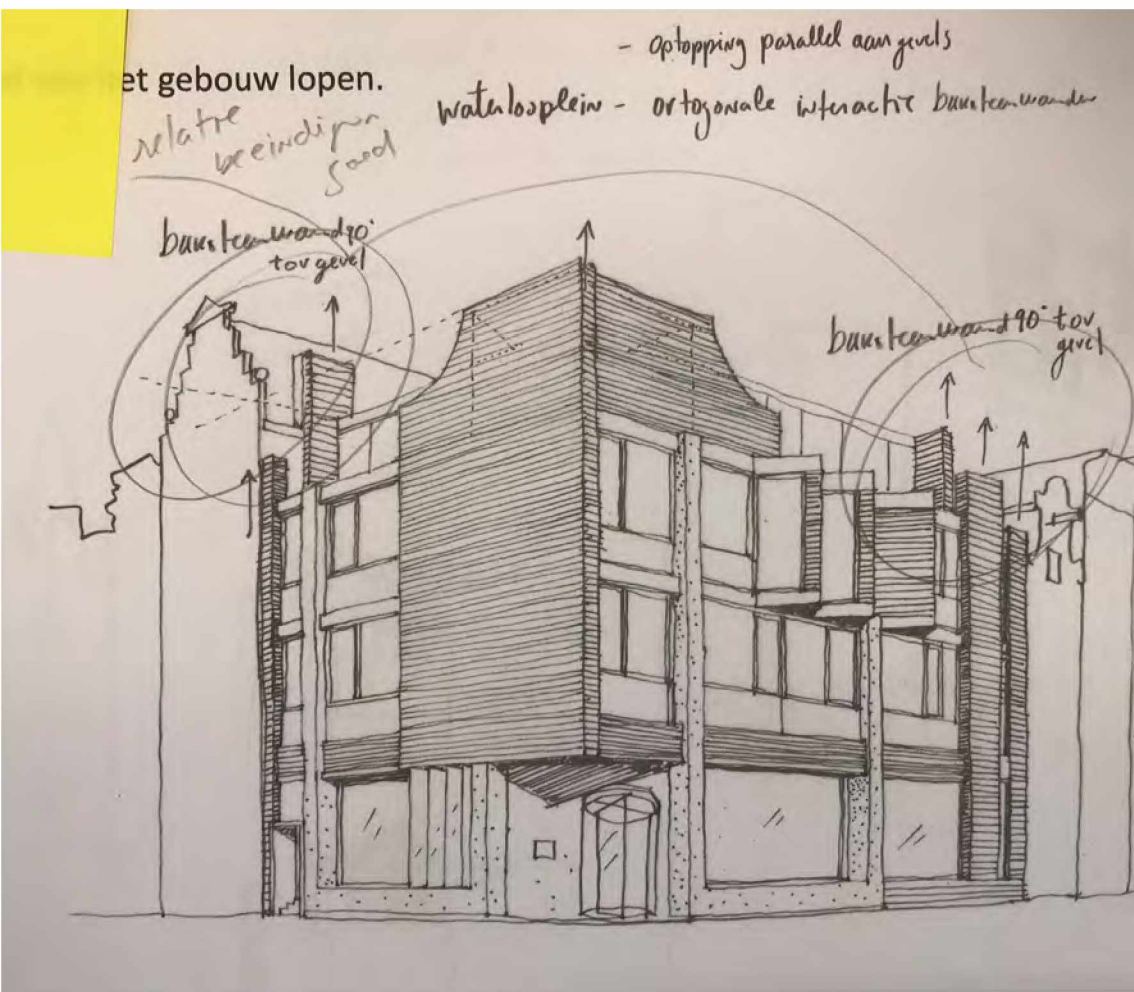 - optopping parallel aan gevels
et gebouw lopen.
waterlooplein - ortogonale interactie baksteenwanden
relatie
beeindigen
goed
baksteenwand 90°
tov gevel
baksteenwand 90° tov
gevel